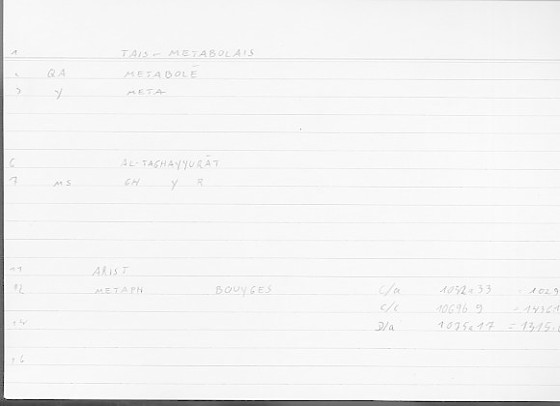 1 TAIS - METABOLAIS
2 QA METABOLĒ
3 Y META
6 AL-TAGHAYYURĀT
7 MS GH Y R
11 ARIST
12 METAPH BOUYGES C/a 1032a33 - 1029
C/c 1069b9 - 1436 1
14 D/a 1075a17 = 1715
16